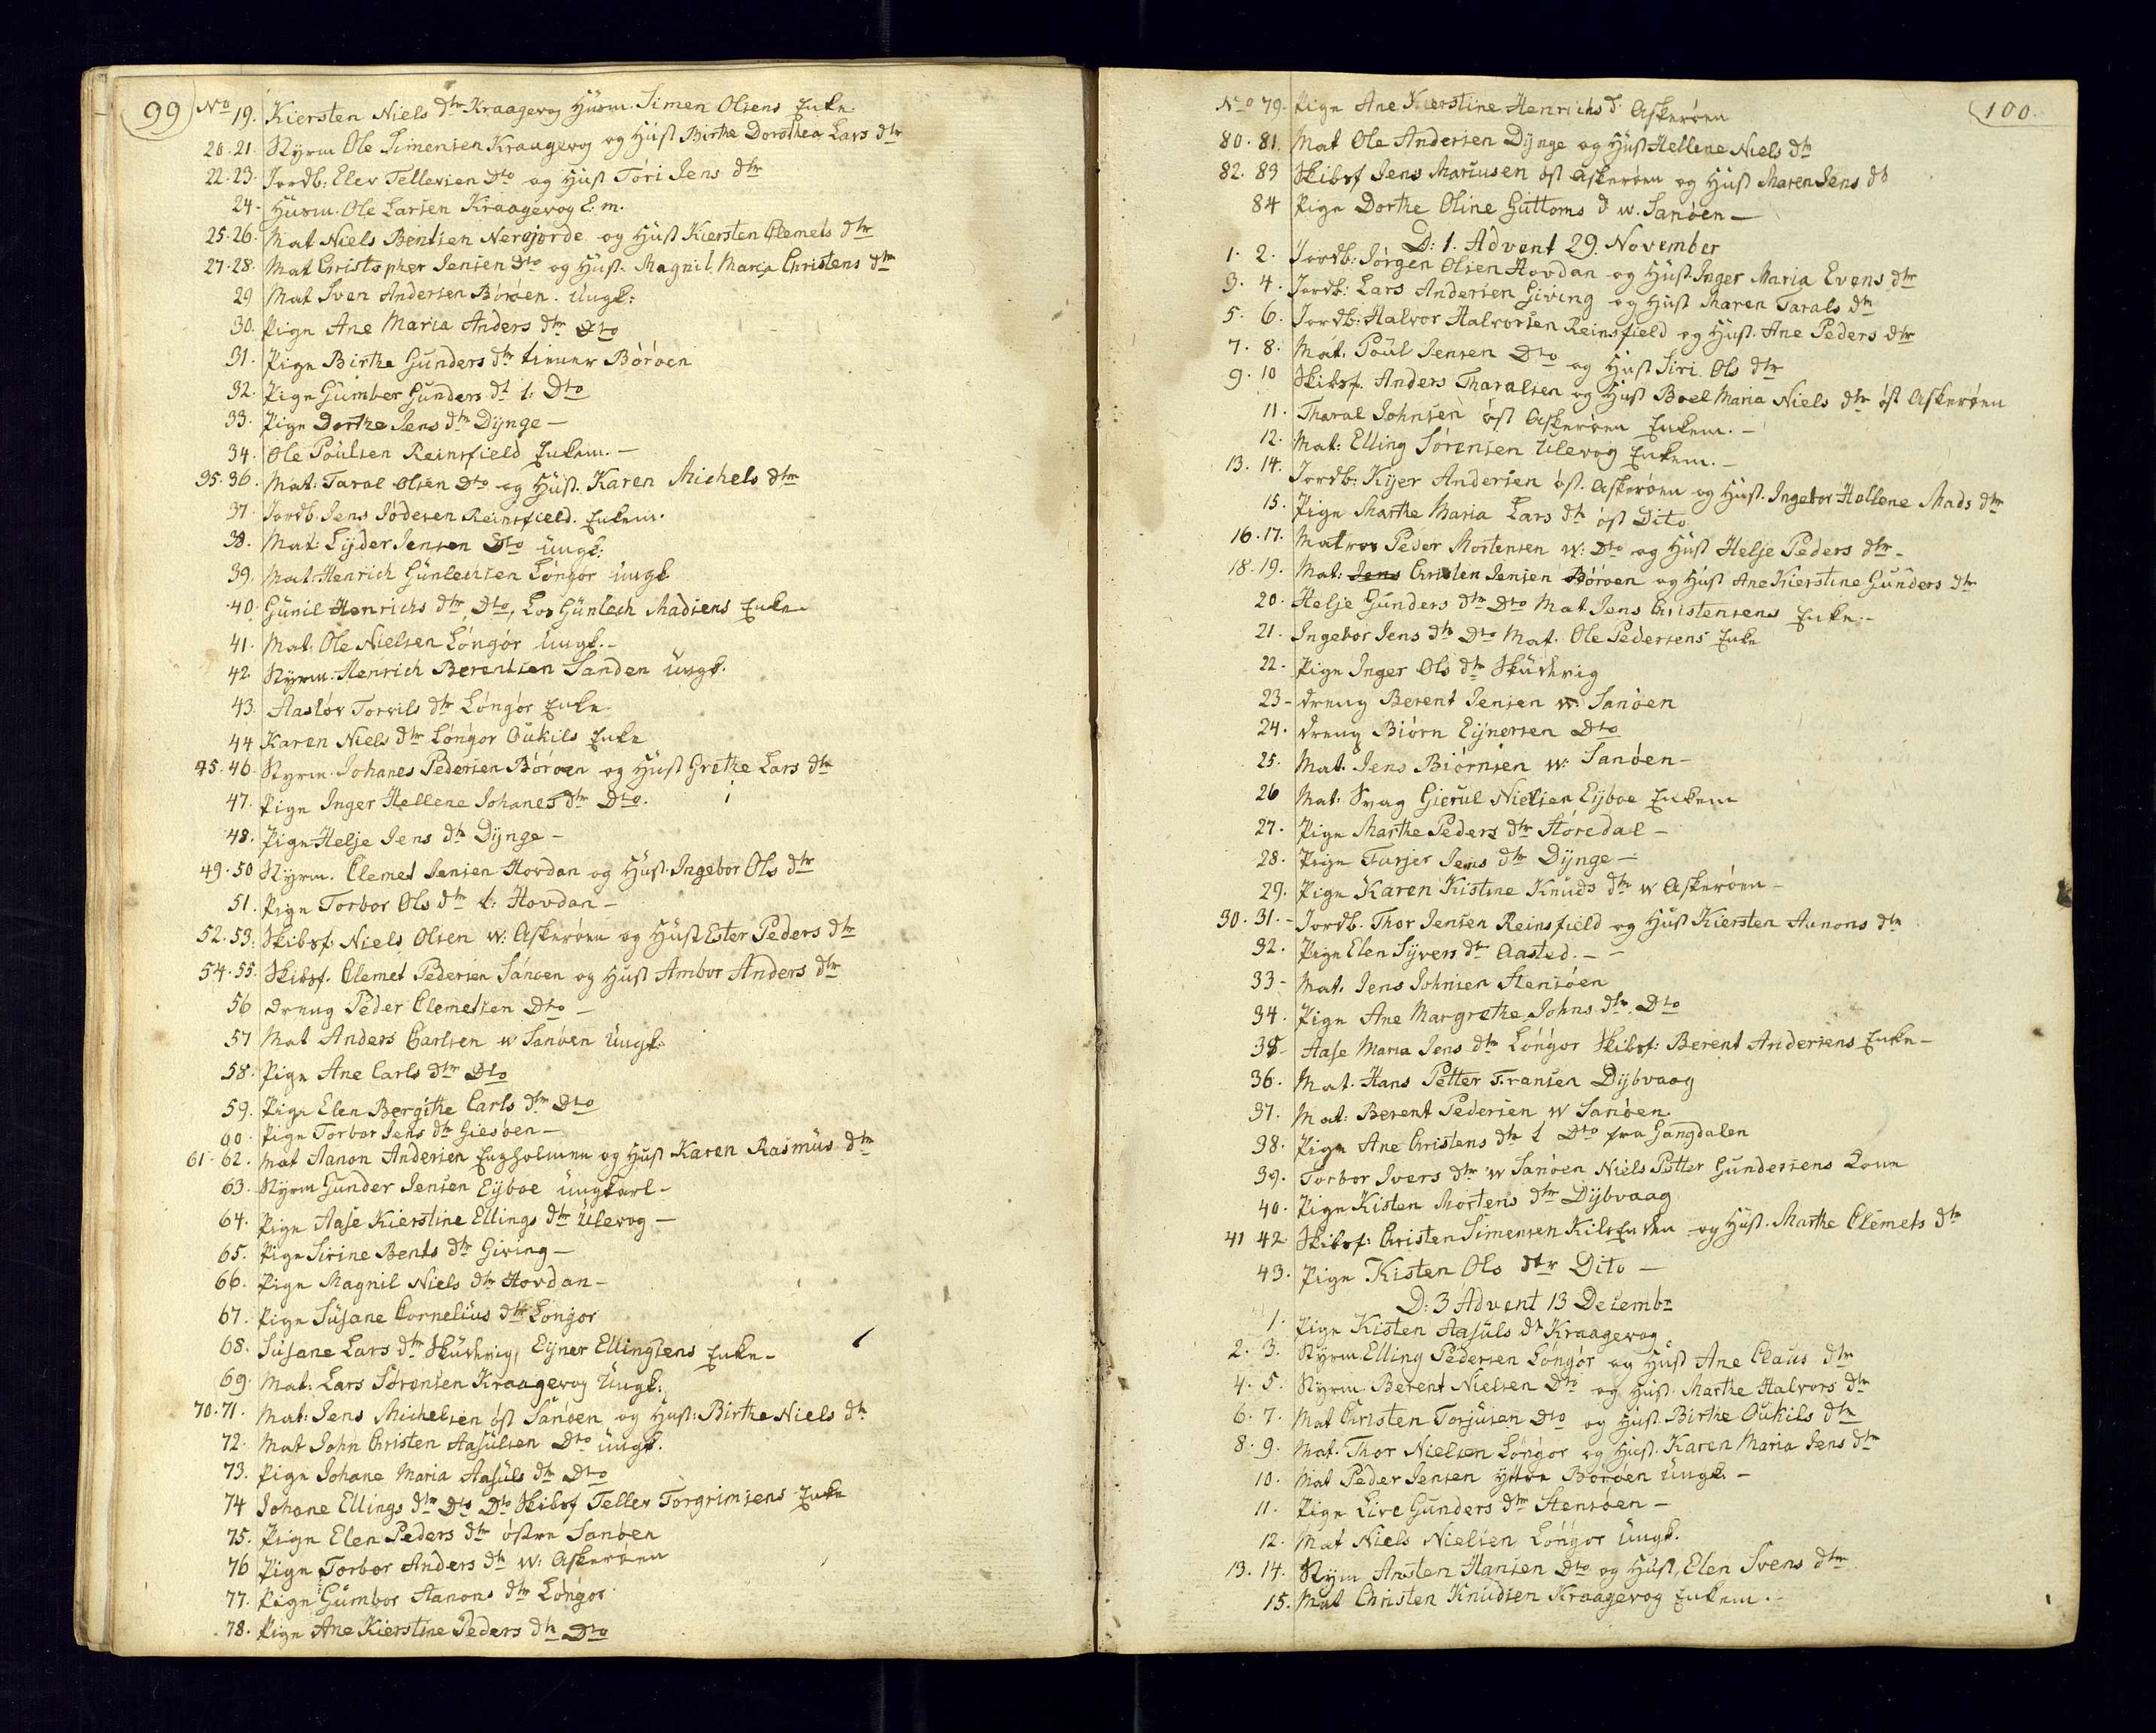 99
No 19. Kiersten Niels dtr Kraagevog Husm. Simen Olsens Enke
20. 21. Styrm Ole Simensen Kraagevog og Hust Birthe Dorothea Lars dtr
22. 23. Jordb: Elev Tellevsen Dto og Hust Tóri Jens dtr
24. Husm. Ole Larsen Kraagevog E.m.
25. 26. Mat Niels Bentsen Nergjorde og Hust Kiersten Clemets dtr
27. 28. Mat Christopher Jensen Dto og Hust. Magnil Maria Christens dtr
29 Mat Sven Andersen Bóróen. Ungk:
30. Pige Ane Maria Anders dtr Dto
31. Pige Birthe Gunders dtr tiener Bóróen
32. Pige Gumber Gunders dt t: Dto
33. Pige Dorthe Jens dtr Dynge —
34. Ole Poulsen Reinsfield Enkem. —
35. 36. Mat: Taral Olsen Dto og Hust. Karen Michels dtr
37. Jordb. Jens Jodesen Reinsfield. Enkem.
38. Mat: Lyder Jensen Dto ungk:
39. Mat: Henrich Gunlechsen Lóngór ungk
40. Gunil Henrichs dtr Dto, Los Gunlech Madsens Enke
41. Mat: Ole Nielsen Lóngór Ungk. –
42 Styrm. Henrich Berentsen Sanden ungk.
43. Aaslóv Torvils dtr Lóngór Enke
44 Karen Niels dtr Lóngór Oukils Enke
45. 46. Styrm. Johanes Pedersen Bóróen og Hust Grethe Lars dtr
47. Pige Inger Hellene Johanes dtr Dto.
48. Pige Helje Jens dtr Dynge –
49. 50 Styrm. Clemet Jensen Hovdan og Hust. Ingebor Ols dtr
51. Pige Torbor Ols dtr t: Hovdan –
52. 53. Skibsf: Niels Olsen w: Askeróen og Hust Ester Peders dtr
54. 55. Skibsf. Clemet Pedersen Sanóen og Hust Ambor Anders dtr
56 Dreng Peder Clemetsen Dto –
57 Mat Anders Carlsen w Sanóen Ungk:
58. Pige Ane Carls dtr Dto
59. Pige Elen Bergithe Carls dtr Dto
60. Pige Torbor Jens dtr Giesóen –
61. 62. Mat Aanon Andersen Engholmen og Hust Karen Rasmus dtr
63. Styrm Gunder Jensen Eyboe ungkarl –
64. Pige Aase Kierstine Ellings dtr Ulevog —
65. Pige Sirine Bents dtr Giving —
66. Pige Magnil Niels dtr Hovdan –
67. Pige Susane Cornelius dtr Longor
68. Susane Lars dtr Skuthvig, Eyner Ellingsens Enke –
69. Mat: Lars Sórensen Kraagevog Ungk:
70. 71. Mat: Jens Michelsen óst Sanóen og Hust: Birthe Niels dtr
72. Mat John Christen Aasulsen Dto ungk.
73. Pige Johane Maria Aasuls dtr Dto
74 Johane Ellings dtr Dto Dto Skibsf Tellev Torgrimsens Enke
75. Pige Elen Peders dtr óstre Sanóen
76 Pige Torbor Anders dtr w: Askeróen
77. Pige Gumbor Aanons dtr Lóngór
78. Pige Ane Kierstine Peders dtr Dto
100.
No 79. Pige Ane Kierstine Henrichs d. Askeróen
80. 81. Mat Ole Andersen Dynge og Hust Hellene Niels dtr
82. 83 Skibsf Jens Mariusen óst Askeróen og Hust Maren Jens dt
84 Pige Dorthe Oline Guttoms d w. Sanóen —
D: 1. Advent 29. November
1. 2. Jordb: Jórgen Olsen Hovdan og Hust. Inger Maria Evens dtr
3. 4. Jordb: Lars Andersen Giving og Hust Maren Tarals dtr
5. 6. Jordb: Halvor Halvorsen Reinsfield og Hust. Ane Peders dtr
7. 8. Mat. Poul Jensen Dto og Hust Siri Ols dtr
9. 10 Skibsf. Anders Tharalsen og Hust Boel Maria Niels dtr óst Askeróen
11. Tharal Johnsen óst Askeróen Enkem. –
12. Mat: Elling Sórensen Ulevog Enkem. –
13. 14. Jordb: Kyer Andersen óst. Askeróen og Hust. Ingebor Hellene Mads dtr
15. Pige Marthe Maria Lars dtr óst Dito
16. 17. Matros Peder Mortensen w: Dto og Hust Helje Peders dtr –
18. 19. Mat: Jens Christen Jensen Bóróen og Hust Ane Kierstine Gunders dtr
20. Helje Gunders dtr Dto Mat Jens Christensens Enke. –
21. Ingebor Jens dtr Dto Mat. Ole Pedersens Enke
22. Pige Inger Ols dtr Skuthvig
23 – Dreng Berent Jensen w: Sanóen
24. Dreng Biórn Eynersen Dto
25. Mat. Jens Biórnsen w: Sanóen –
26 Mat: Svag Gierul Nielsen Eyboe Enkem
27. Pige Marthe Peders dtr Stóredal –
28. Pige Turjer Jens dtr Dynge —
29. Pige Karen Kistine Knuds dtr w Askeróen –
30. 31. – Jordb. Thor Jensen Reinsfield og Hust Kiersten Aanons dtr
32. Pige Elen Syvers dtr Aasted. – –
33 – Mat. Jens Johnsen Stensóen
34. Pige Ane Margrethe Johns dtr Dto
35 – Aase Maria Jens dtr Lóngór Skibsf: Berent Andersens Enke –
36. Mat. Hans Petter Fransen Dybvaag
37. Mat: Berent Pedersen w Sanóen
38. Pige Ane Christens dtr t Dto fra Gangdalen
39. Torbor Ivers dtr w Sanóen Niels Petter Gundersens Kone
40. Pige Kisten Mortens dtr Dybvaag
41 42 Skibsf: Christen Simensen KilsEnden og Hust. Marthe Clemets dtr
43. Pige Kisten Ols dtr Dito —
D: 3 Advent 13 Decembr
1. Pige Kisten Aasuls dt Kraagevog
2. 3. Styrm. Elling Pedersen Lóngór og Hust Ane Claus dtr
4. 5. Styrm. Berent Nielsen Dto og Hust. Marthe Halvors dtr
6. 7. Mat Christen Torjusen Dto og Hust. Birthe Oukils dtr
8. 9. Mat. Thor Nielsen Lóngór og Hust. Karen Maria Jens dtr
10. Mat Peder Jensen Yttre Bóróen Ungk. –
11. Pige Live Gunders dtr Stensóen –
12. Mat Niels Nielsen Lóngór Ungk.
13. 14. Stym Ansten Hansen Dto og Hust, Elen Svens dtr
15. Mat Christen Knudsen Kraagevog Enkem. –